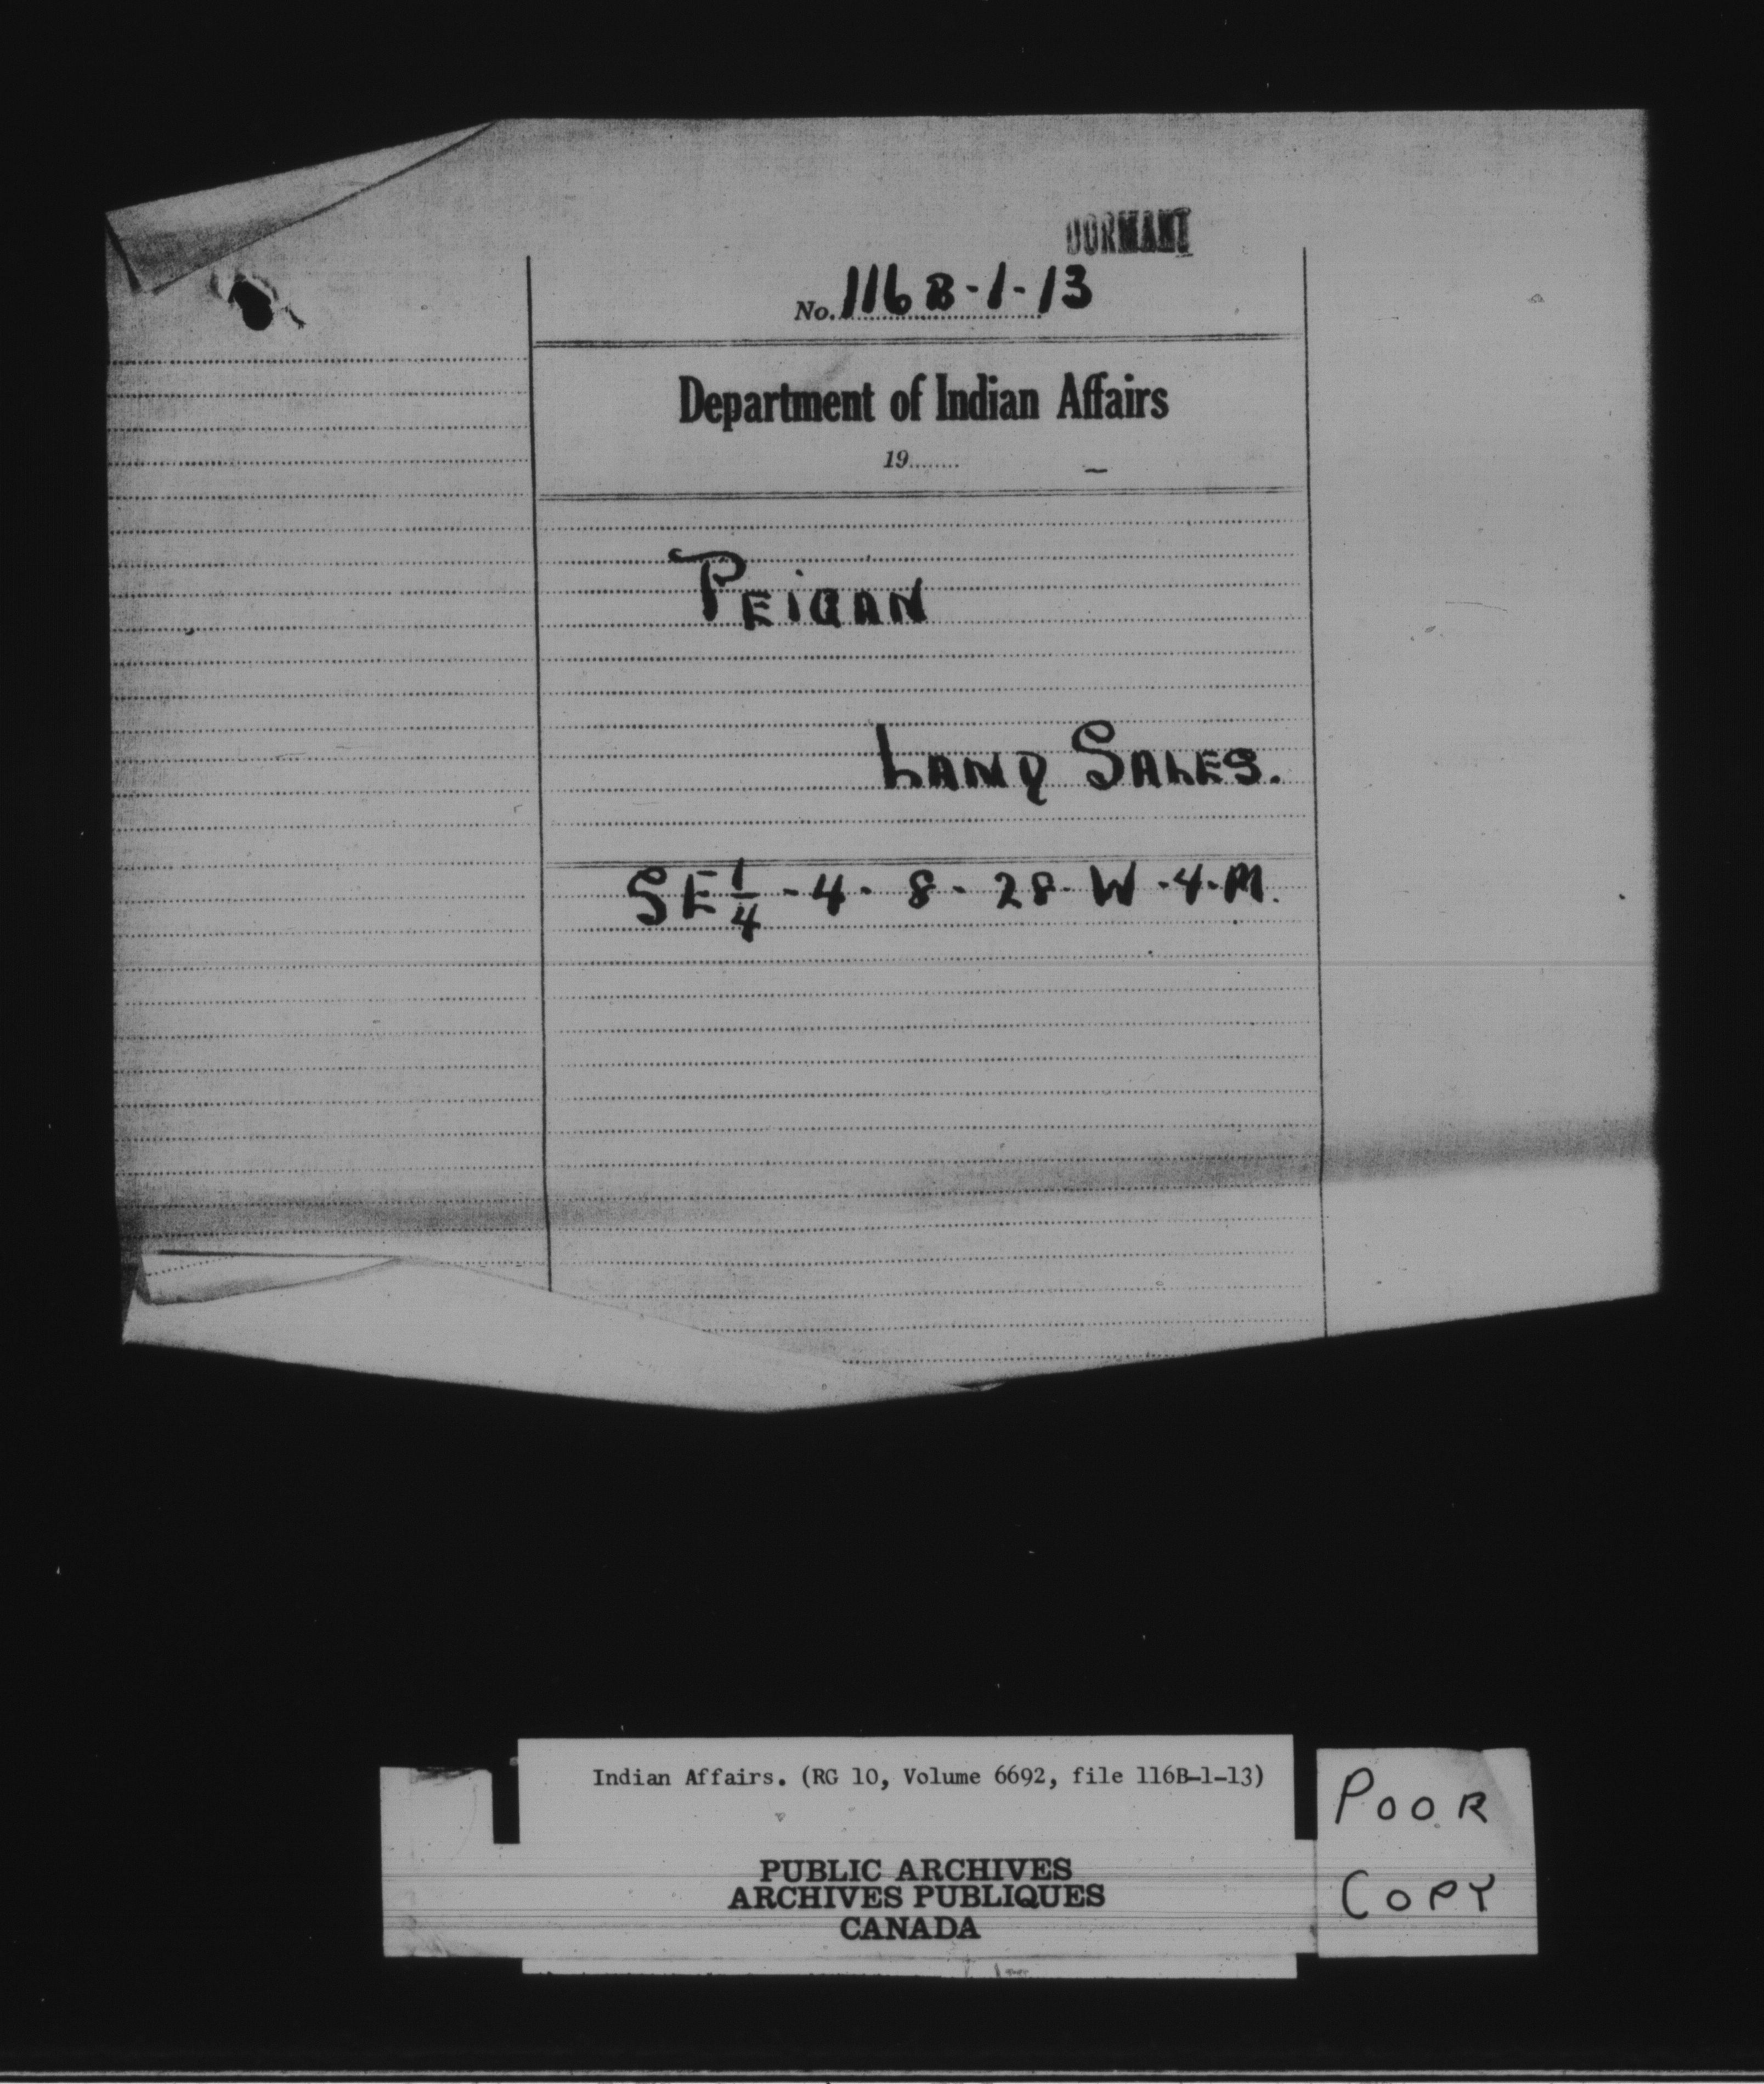 DORMANT
No. 116B-1-13
Department of Indian Affairs
19........
PEIGAN
LAND SALES.
SE 1/4 - 4 - 8 - 28 - W - 4 - M.
Indian Affairs. (RG 10, Volume 6692, file 116B-1-13)
PUBLIC ARCHIVES
ARCHIVES PUBLIQUES
CANADA
POOR
COPY